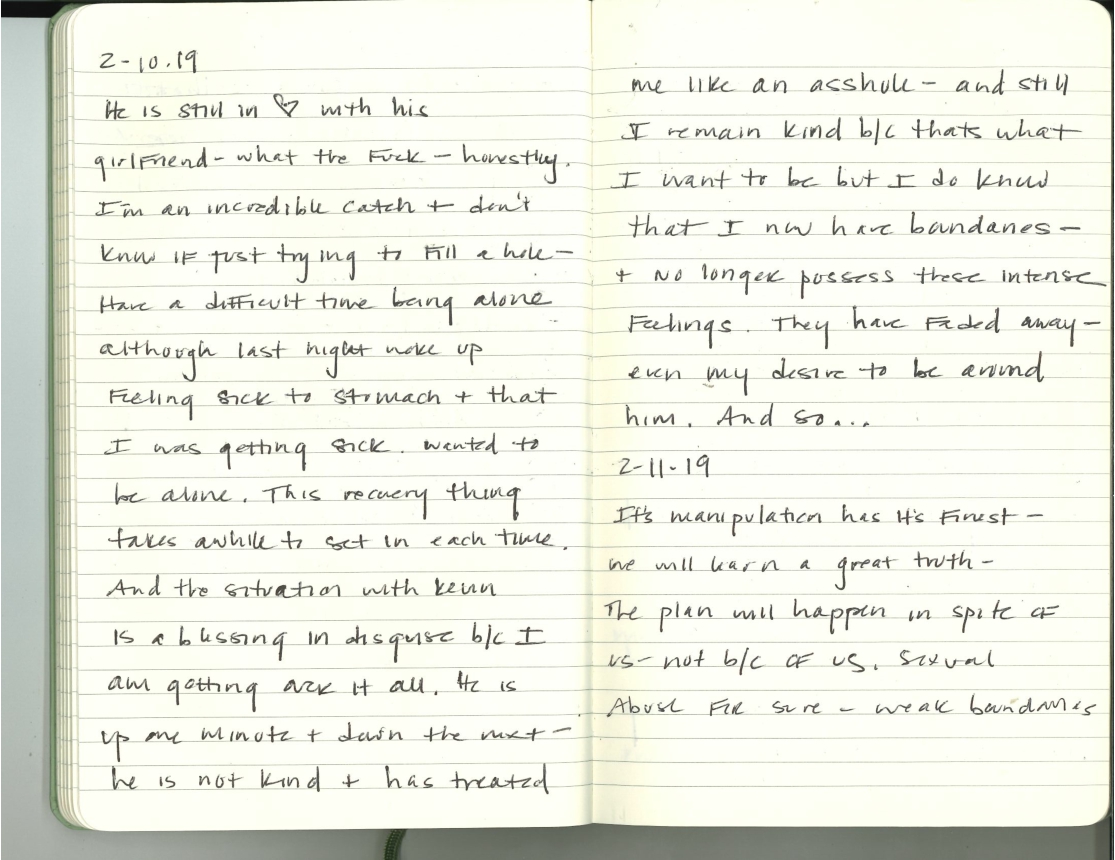 2-10.19
He is still in ♡ with his
girlfriend - what the Fuck - honestly.
I'm an incredible catch + don't
know IF just trying to Fill a hole -
Have a difficult time being alone
although last night woke up
Feeling sick to stomach + that
I was getting sick. wanted to
be alone. This recovery thing
takes awhile to set in each time.
And the situation with Kevin
is a blessing in disguise b/c I
am getting over it all. He is
up one minute + down the next -
he is not kind + has treated
me like an asshole - and still
I remain kind b/c thats what
I want to be but I do know
that I now have boundaries -
+ No longer possess these intense
Feelings. They have Faded away -
even my desire to be around
him. And so...
2-11-19
It's manipulation has it's Finest -
we will learn a great truth -
The plan will happen in spite OF
us - not b/c OF us. Sexual
Abuse For sure - weak boundaries